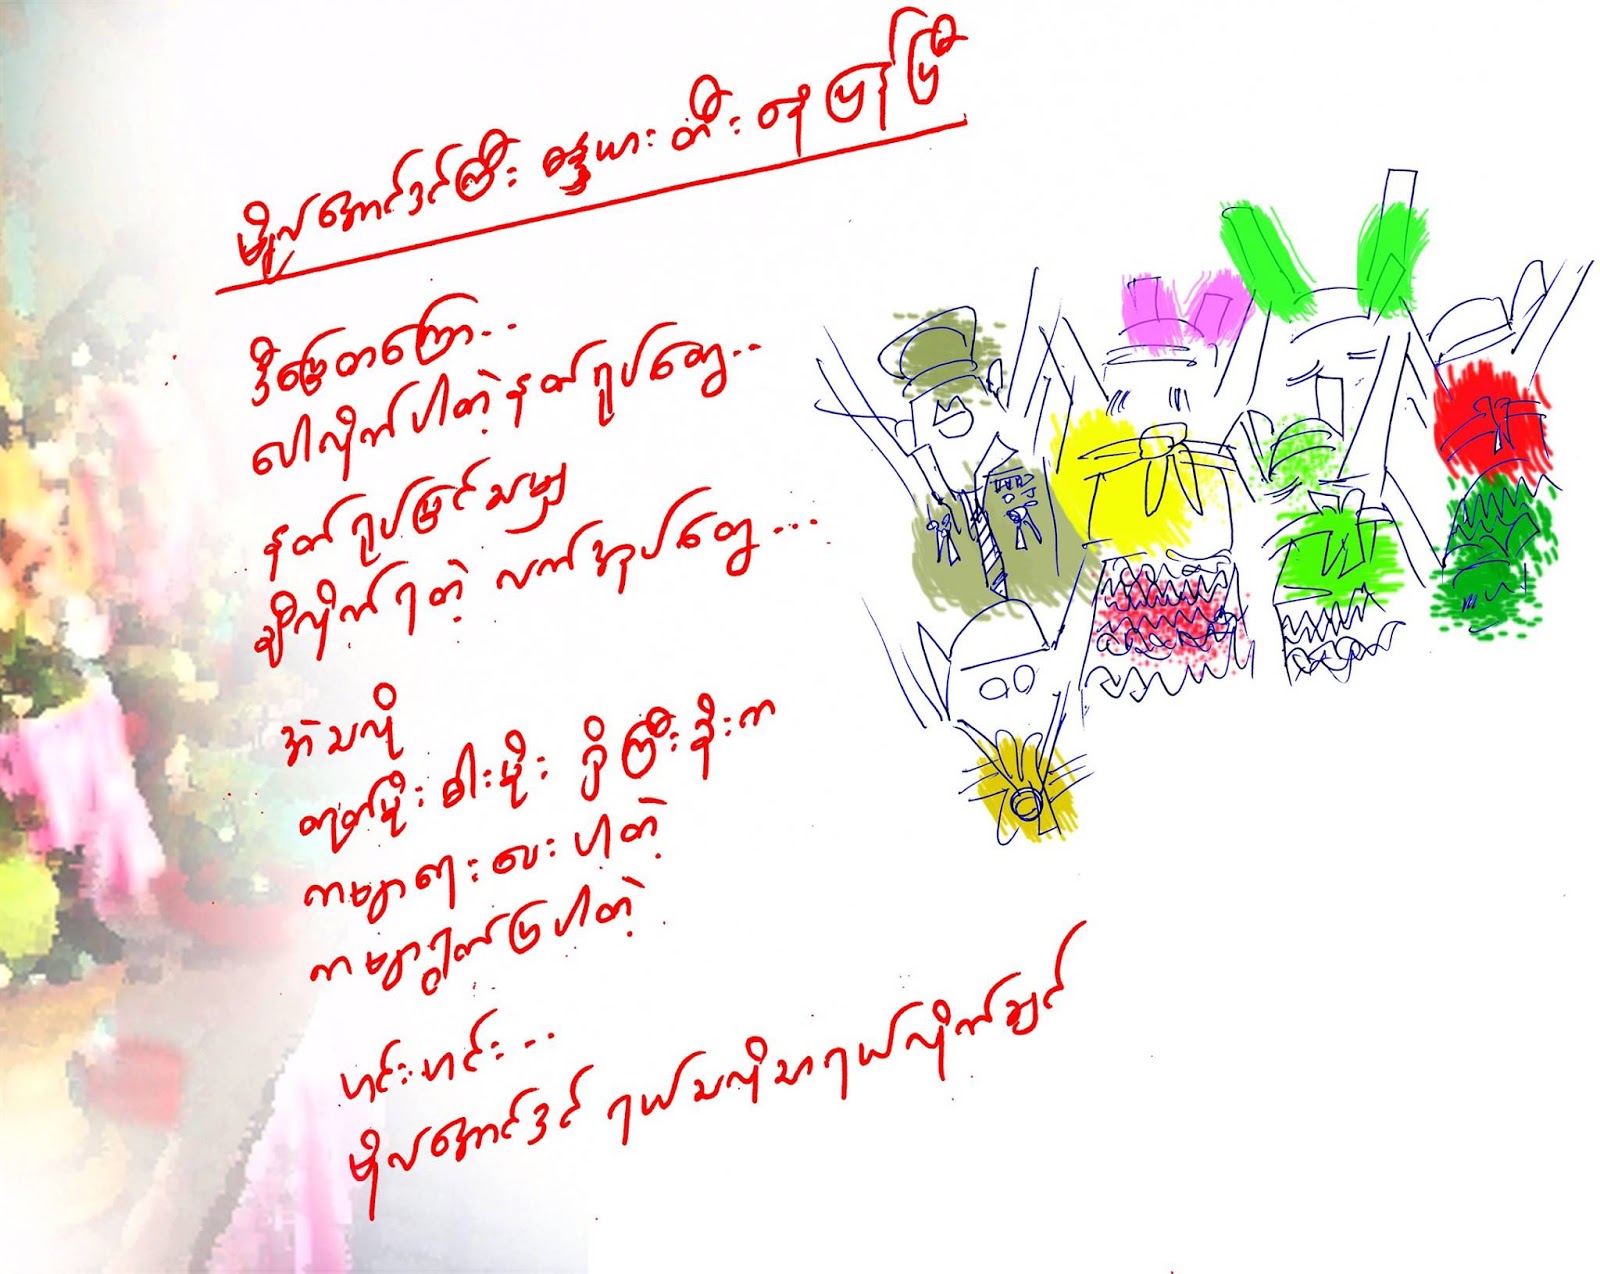 ဗိုလ်အောင်ဒင်ကြီး စန္ဒယား တီး နေ ပြန် ပြီ
ဒီမြွေတကြော..
ပေါလိုက်ပါတဲ့ နတ်ရုပ်တွေ..
နတ်ရုပ်မြင်သမျှ
ချီလိုက်ရတဲ့ လက်အုပ်တွေ...
အဲသလို
ဓါးမိုး ကြီးမိုးက
ကဗျာရေးပေးပါတဲ့
ကဗျာရွတ်ပြပါတဲ့
ဟင်းဟင်း...
ဗိုလ်အောင်ဒင် ရယ်သလိုသာရယ်လိုက်ချင်